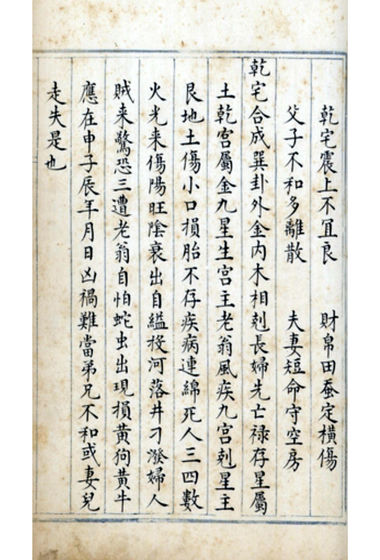 乾宅震上不宜良　財帛田蚕定橫傷
父子不和多離散　夫妻短命守空房
乾宅合成巽卦外金内木相剋長婦先亡禄存星屬
土乾宫屬金九星生宫主老翁風疾九宫剋星主
艮地土傷小口損胎不存疾病連綿死人三四數
火光来傷陽旺陰衰出自縊投河落井刁潑婦人
賊来驚恐三遭老翁自怕蛇虫出現損黄狗黄牛
應在申子辰年月日凶禍難當弟兄不和或妻兒
走失是也